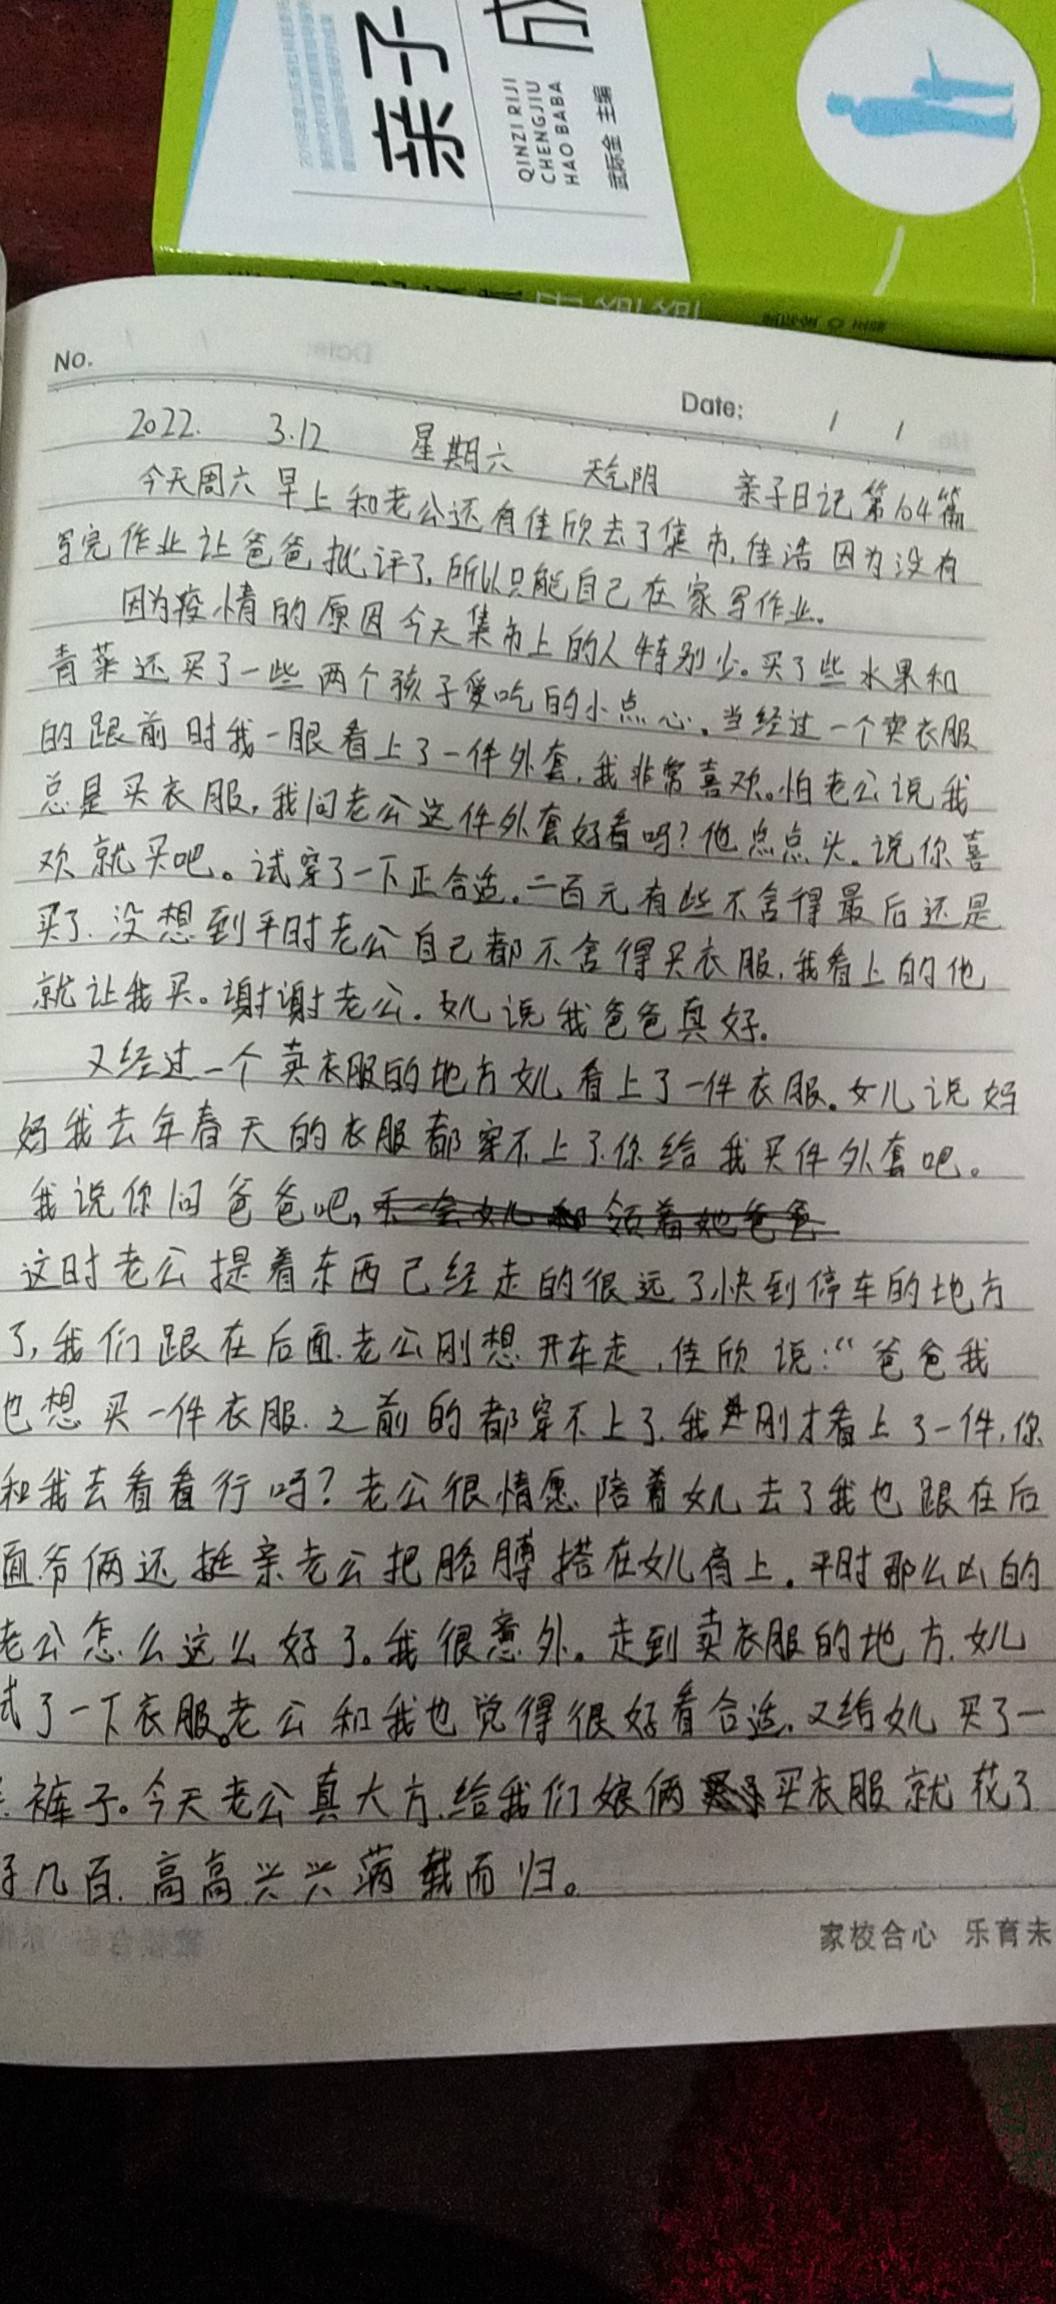 亲子
成
QINZI RIJI
CHENGJIU
HAO BABA
武际金 主编
No.
Date: / /
2022. 3.12 星期六 天气阴 亲子日记第104篇
今天周六早上和老公还有佳欣去了集市,佳浩因为没有
写完作业让爸爸批评了,所以只能自己在家写作业。
因为疫情的原因今天集市上的人特别少。买了些水果和
青菜还买了一些两个孩子爱吃的小点心。当经过一个卖衣服
的跟前时我一眼看上了一件外套,我非常喜欢。怕老公说我
总是买衣服,我问老公这件外套好看吗?他点点头。说你喜
欢就买吧。试穿了一下正合适。二百元有些不舍得最后还是
买了.没想到平时老公自己都不舍得买衣服,我看上的他
就让我买。谢谢老公.女儿说我爸爸真好.
又经过一个卖衣服的地方女儿看上了一件衣服.女儿说妈
妈我去年春天的衣服都穿不上了.你给我买件外套吧。
我说你问爸爸吧,不一会女儿和领着她爸爸
这时老公提着东西已经走的很远了,快到停车的地方
了,我们跟在后面.老公刚想开车走,佳欣说:“爸爸我
也想买一件衣服.之前的都穿不上了.我刚才看上了一件,你
和我去看看行吗?老公很情愿陪着女儿去了我也跟在后
面爷俩还挺亲老公把胳膊搭在女儿肩上.平时那么凶的
老公怎么这么好了。我很意外。走到卖衣服的地方.女儿
试了一下衣服。老公和我也觉得很好看合适.又给女儿买了一
裤子。今天老公真大方.给我们娘俩买衣服就花了
好几百.高高兴兴满载而归。
家校合心 乐育未